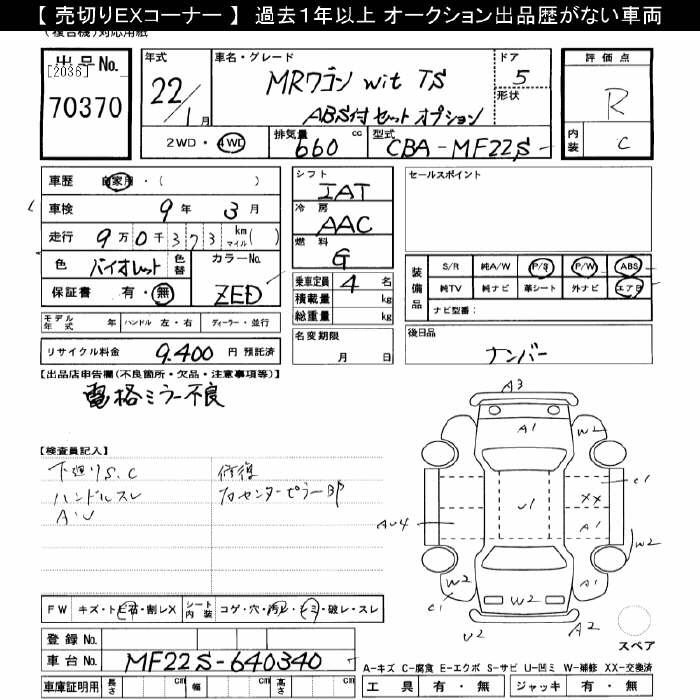 【 売切りEXコーナー 】 過去1年以上 オークション出品歴がない車両
(複合機)対応用紙
出品No.
[2036]
70370
年式
22/1月
車名・グレード
MRワゴン wit TS
ABS付セットオプション
ドア
5
形状
評価点
R
内装
C
2WD・4WD
排気量
660 cc
型式
CBA-MF22S
車歴 自家用・( )
車検 9年 3月
走行 9万0千373 km マイル( )
色 バイオレット 色替
カラーNo.
ZED
保証書 有・無
モデル年式 年 ハンドル 左・右 ディーラー・並行
リサイクル料金 9,400 円 預託済
シフト
IAT
冷房
AAC
燃料
G
乗車定員 4 名
積載量 kg
総重量 kg
名変期限
月 日
セールスポイント
装備品
S/R 純A/W P/S P/W ABS
純TV 純ナビ 革シート 外ナビ エアB
ナビ型番:
後日品
ナンバー
【出品店申告欄(不良箇所・欠品・注意事項等)】
電格ミラー不良
【検査員記入】
下廻りS.C
ハンドルスレ
A・U
修復
右センターピラー部
A3
A1
W2
C1
U1
XX
A1
AU4
W2
W2
C1
W2
A1
U2
A2
スペア
FW キズ・トビ石・割レX シート内装 コゲ・穴・汚レ・シミ・破レ・スレ
登録No.
車台No. MF22S-640340
車庫証明用 長さ cm 幅 cm 高さ cm
A-キズ C-腐食 E-エクボ S-サビ U-凹ミ W-補修 XX-交換済
工具 有・無 ジャッキ 有・無